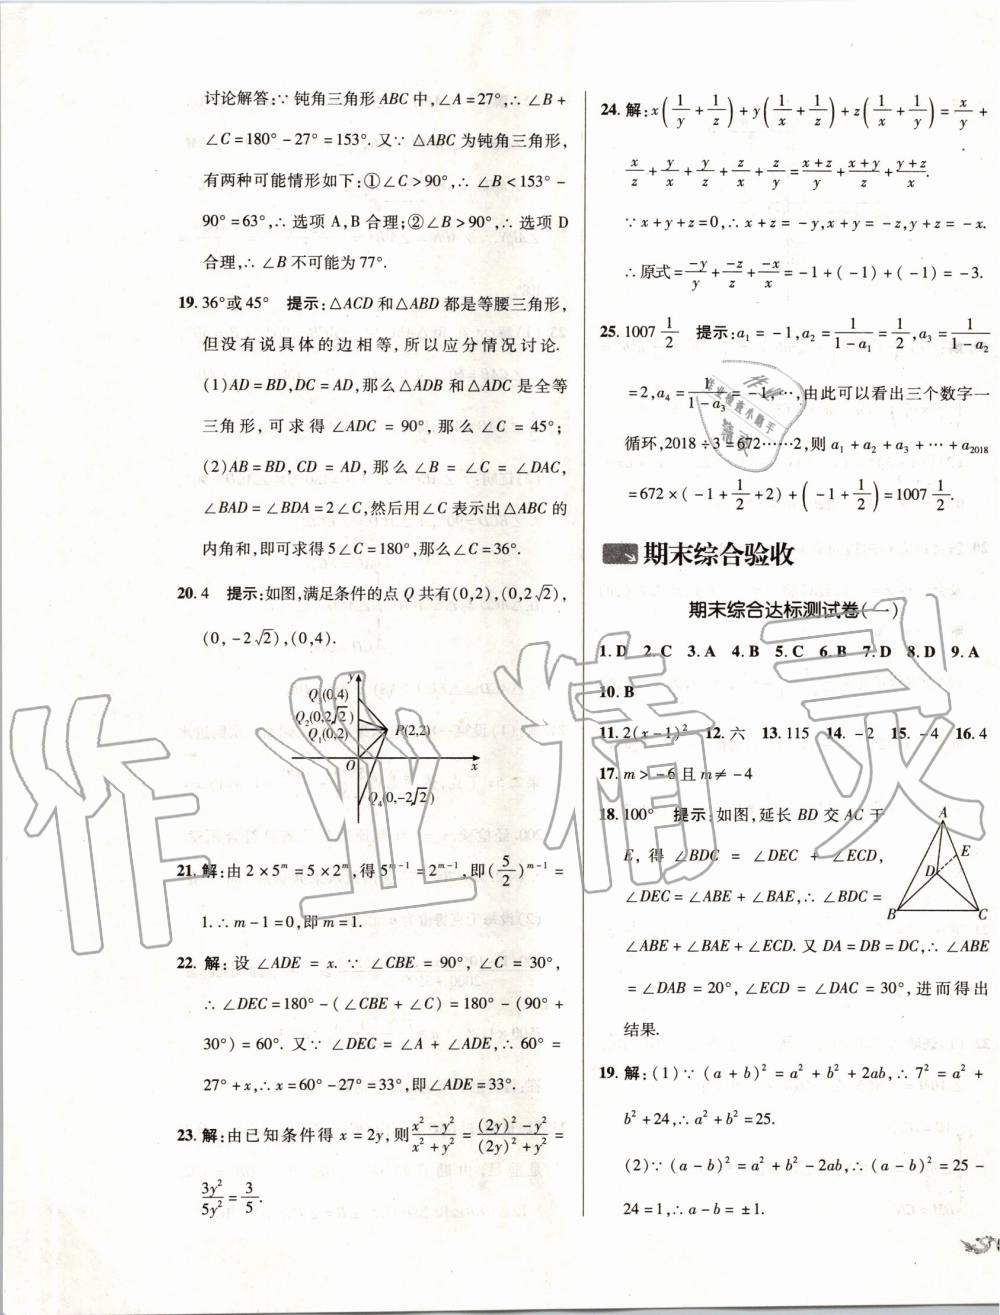 讨论解答:∵ 钝角三角形 ABC 中,∠A=27°,∴ ∠B+
∠C=180°-27°=153°. 又∵ △ABC 为钝角三角形,
有两种可能情形如下:①∠C>90°,∴ ∠B<153°-
90°=63°,∴ 选项 A,B 合理;②∠B>90°,∴ 选项 D
合理,∴ ∠B 不可能为 77°.
19. 36°或 45° 提示:△ACD 和△ABD 都是等腰三角形,
但没有说具体的边相等,所以应分情况讨论.
(1)AD=BD,DC=AD,那么△ADB 和△ADC 是全等
三角形,可求得∠ADC=90°,那么∠C=45°;
(2)AB=BD,CD=AD,那么∠B=∠C=∠DAC,
∠BAD=∠BDA=2∠C,然后用∠C 表示出△ABC 的
内角和,即可求得 5∠C=180°,那么∠C=36°.
20. 4 提示:如图,满足条件的点 Q 共有(0,2),(0,2√2),
(0,-2√2),(0,4).
y
Q3(0,4)
Q2(0,2√2)
Q1(0,2)
P(2,2)
O
x
Q4(0,-2√2)
21. 解:由 2×5^m=5×2^m,得 5^(m-1)=2^(m-1),即(5/2)^(m-1)=
1.∴ m-1=0,即 m=1.
22. 解:设 ∠ADE=x. ∵ ∠CBE=90°,∠C=30°,
∴ ∠DEC=180°-(∠CBE+∠C)=180°-(90°+
30°)=60°. 又∵ ∠DEC=∠A+∠ADE,∴ 60°=
27°+x,∴ x=60°-27°=33°,即∠ADE=33°.
23. 解:由已知条件得 x=2y,则(x²-y²)/(x²+y²)=((2y)²-y²)/((2y)²+y²)=
3y²/5y²=3/5.
24. 解:x(1/y+1/z)+y(1/x+1/z)+z(1/x+1/y)=x/y+
x/z+y/x+y/z+z/x+z/y=(x+z)/y+(x+y)/z+(y+z)/x.
∵ x+y+z=0,∴ x+z=-y,x+y=-z,y+z=-x.
∴ 原式=-y/y+-z/z+-x/x=-1+(-1)+(-1)=-3.
25. 1007 1/2 提示:a1=-1,a2=1/(1-a1)=1/2,a3=1/(1-a2)
=2,a4=1/(1-a3)=-1,…,由此可以看出三个数字一
循环,2018÷3=672……2,则 a1+a2+a3+…+a2018
=672×(-1+1/2+2)+(-1+1/2)=1007 1/2.
期末综合验收
期末综合达标测试卷(一)
1. D 2. C 3. A 4. B 5. C 6. B 7. D 8. D 9. A
10. B
11. 2(x-1)² 12. 六 13. 115 14. -2 15. -4 16. 4
17. m>-6 且 m≠-4
18. 100° 提示:如图,延长 BD 交 AC 于
E,得 ∠BDC=∠DEC+∠ECD,
∠DEC=∠ABE+∠BAE,∴ ∠BDC=
∠ABE+∠BAE+∠ECD. 又 DA=DB=DC,∴ ∠ABE
=∠DAB=20°,∠ECD=∠DAC=30°,进而得出
结果.
A
E
D
B
C
19. 解:(1)∵ (a+b)²=a²+b²+2ab,∴ 7²=a²+
b²+24,∴ a²+b²=25.
(2)∵ (a-b)²=a²+b²-2ab,∴ (a-b)²=25-
24=1,∴ a-b=±1.
作业精灵